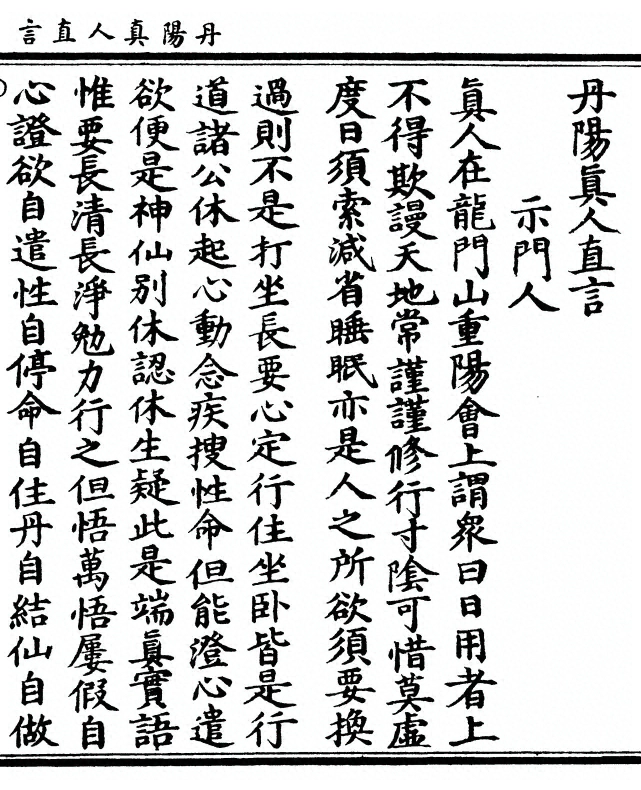 丹陽真人直言
丹陽眞人直言
示門人
眞人在龍門山重陽會上謂衆曰日用者上
不得欺謾天地常謹謹修行寸陰可惜莫虛
度日須索減省睡眠亦是人之所欲須要換
過則不是打坐長要心定行住坐卧皆是行
道諸公休起心動念疾搜性命但能澄心遣
欲便是神仙別休認休生疑此是端眞實語
惟要長清長淨勉力行之但悟萬悟屢假自
心證欲自遣性自停命自住丹自結仙自做